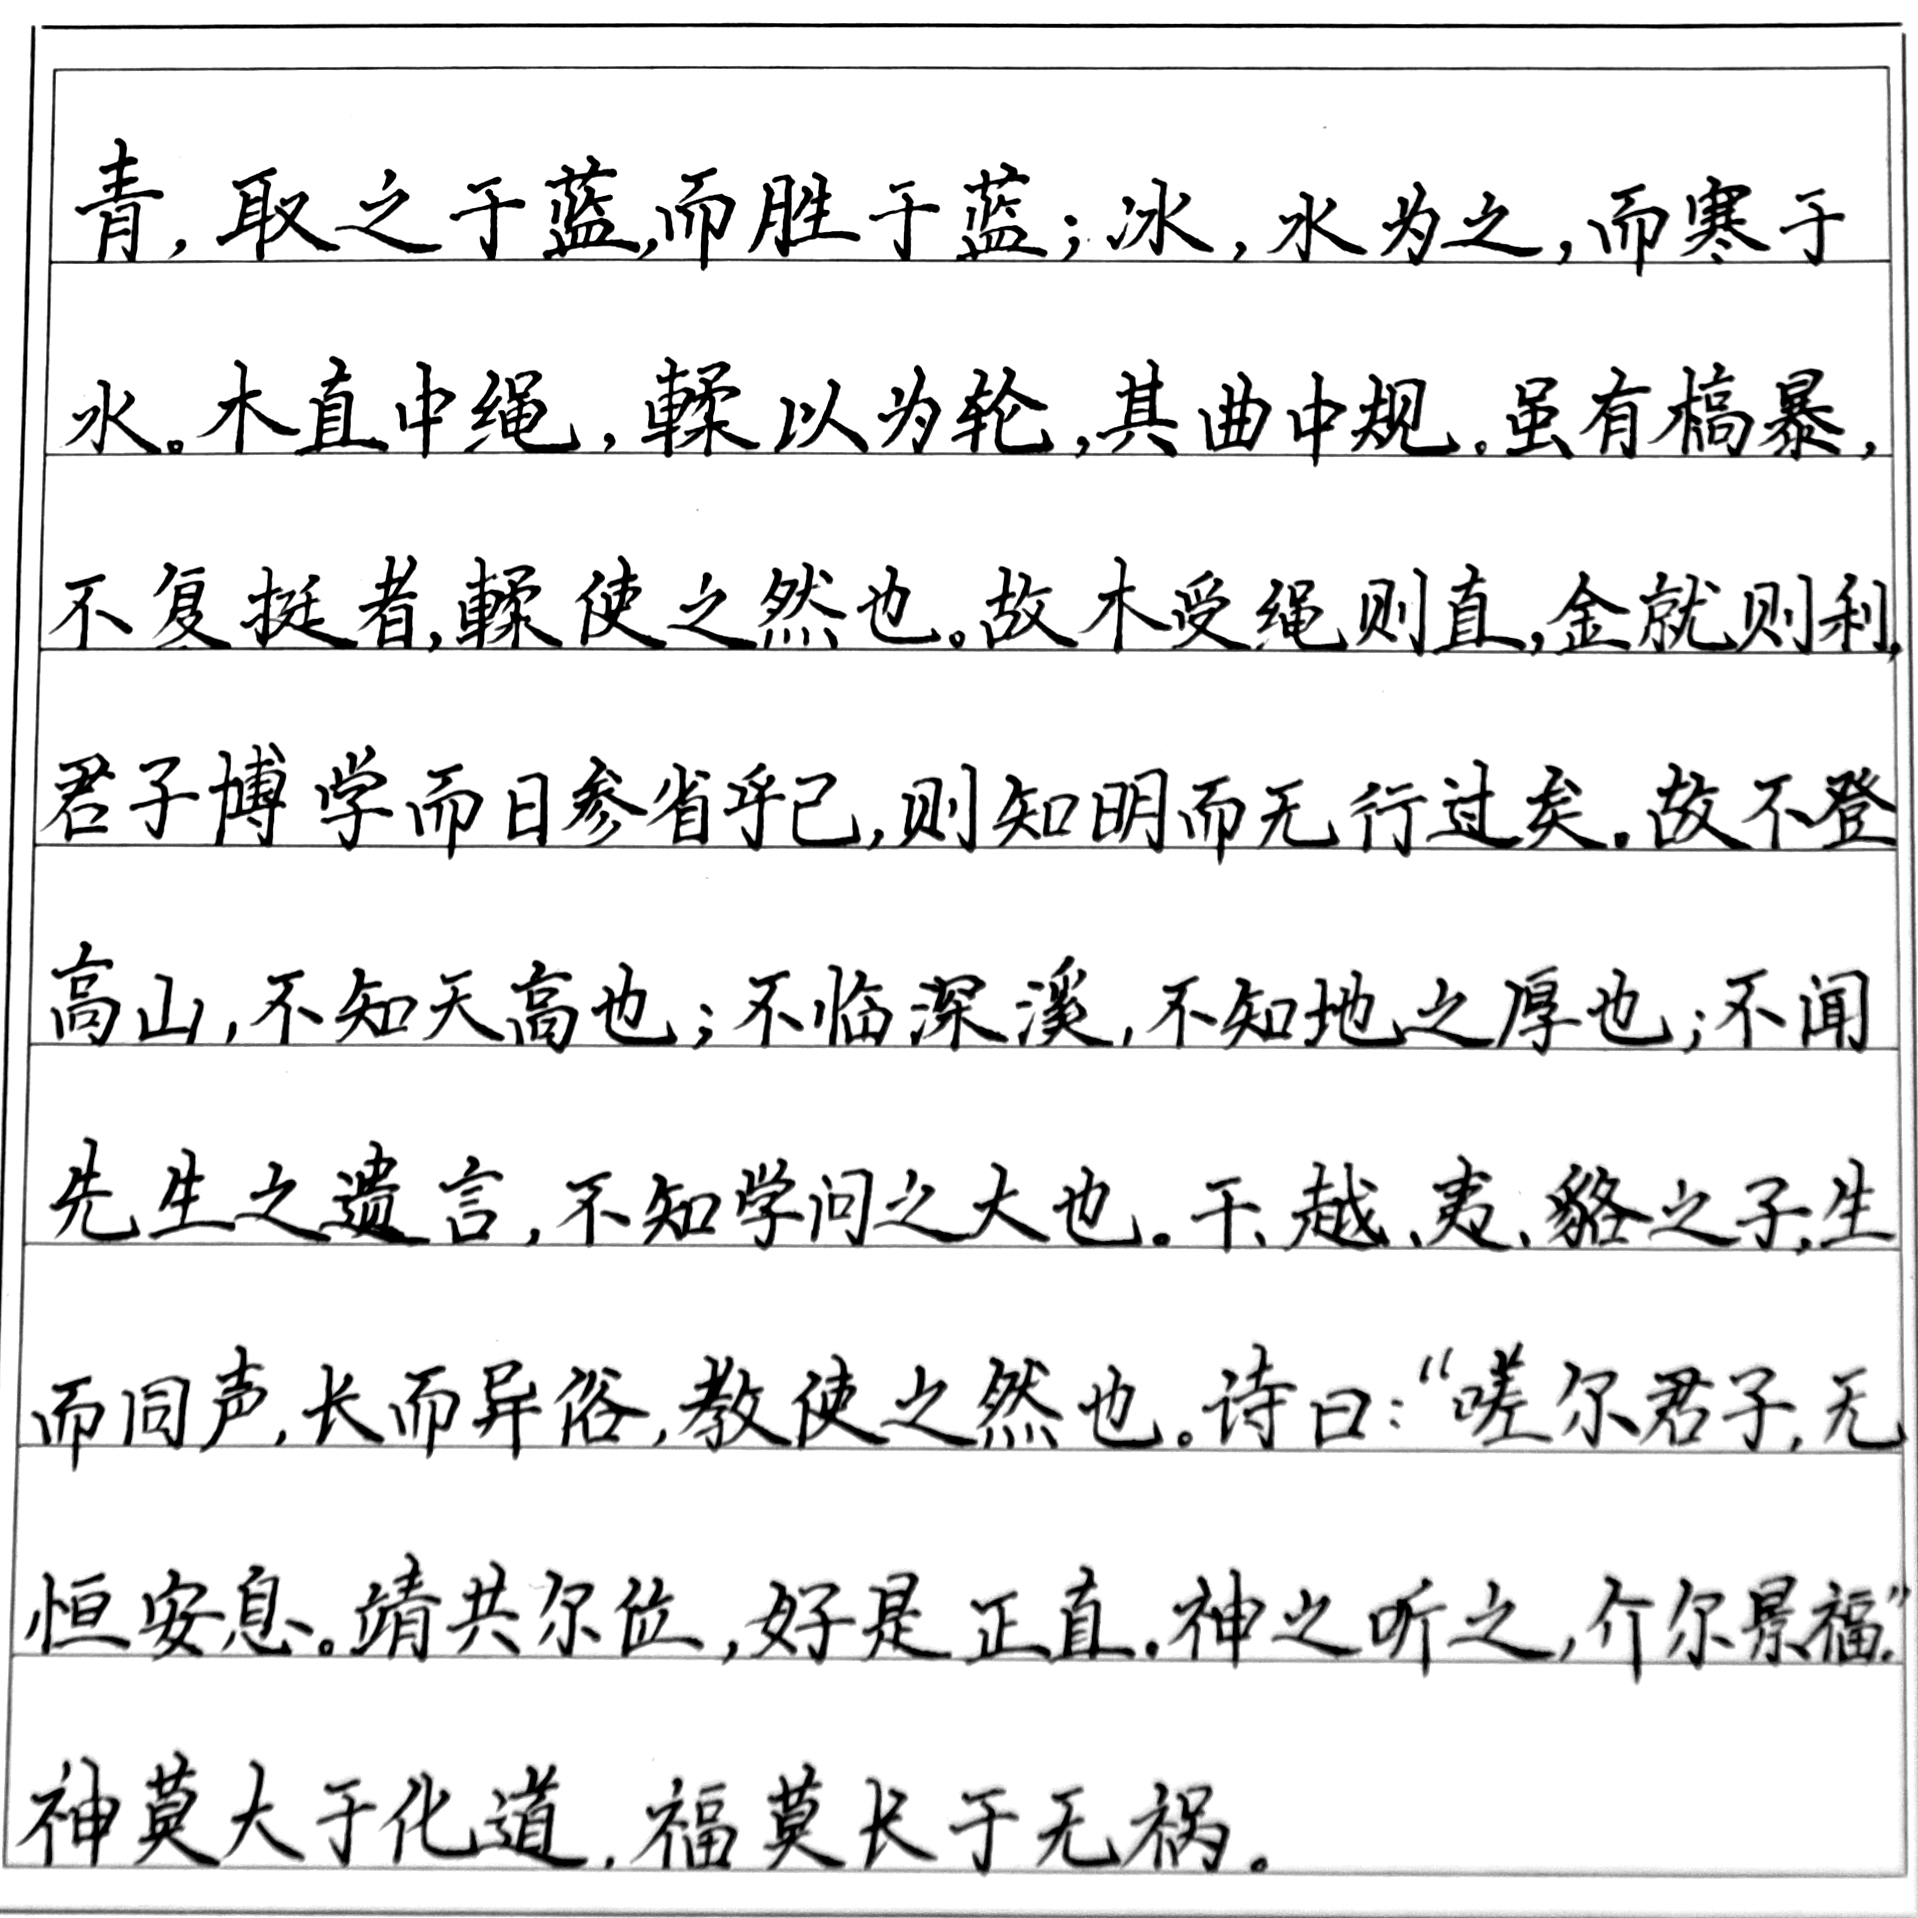 青,取之于蓝,而胜于蓝;冰,水为之,而寒于
水。木直中绳,輮以为轮,其曲中规。虽有槁暴,
不复挺者,輮使之然也。故木受绳则直,金就则利,
君子博学而日参省乎己,则知明而无行过矣。故不登
高山,不知天高也;不临深溪,不知地之厚也;不闻
先生之遗言,不知学问之大也。干、越、夷、貉之子,生
而同声,长而异俗,教使之然也。诗曰:“嗟尔君子,无
恒安息。靖共尔位,好是正直。神之听之,介尔景福。”
神莫大于化道,福莫长于无祸。